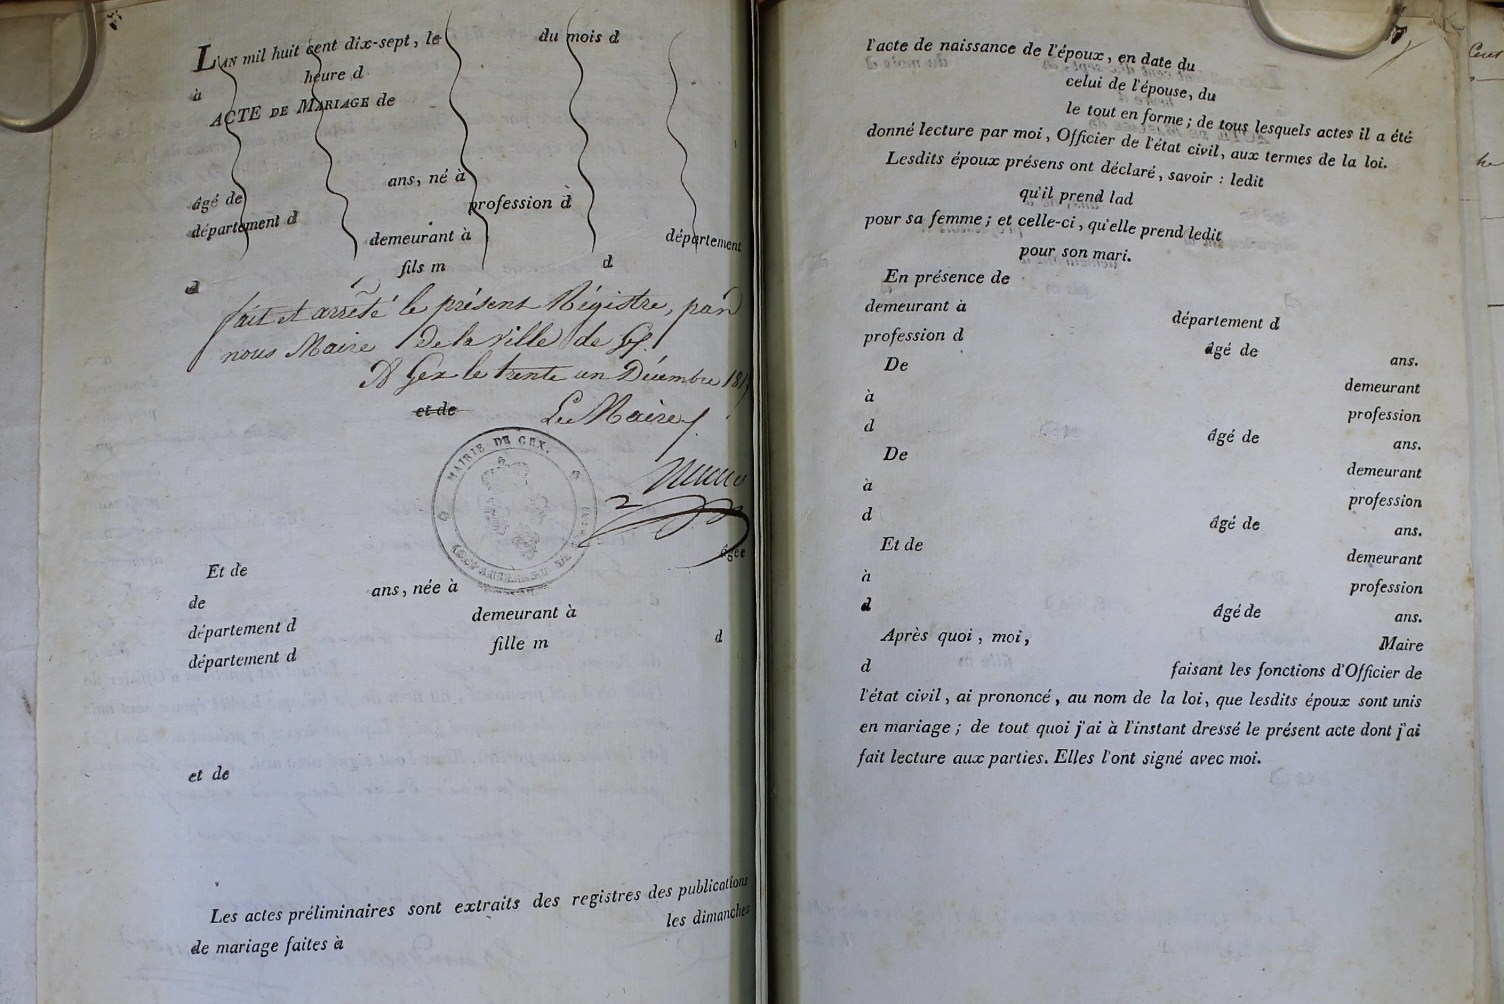 L'AN mil huit cent dix-sept, le du mois d
à heure d
ACTE DE MARIAGE de
âgé de ans, né à
département d profession d
demeurant à département
d fils m d
fait et arrêté le présent Régistre, par
nous Maire de la ville de Gex.
A Gex le trente un Décembre 1817
et de Le Maire
MAIRIE DE GEX.
âgée
Et de
de ans, née à
département d demeurant à
département d fille m d
et de
Les actes préliminaires sont extraits des registres des publications
de mariage faites à les dimanches
l'acte de naissance de l'époux, en date du
celui de l'épouse, du
le tout en forme ; de tous lesquels actes il a été
donné lecture par moi, Officier de l'état civil, aux termes de la loi.
Lesdits époux présens ont déclaré, savoir : ledit
qu'il prend lad
pour sa femme ; et celle-ci, qu'elle prend ledit
pour son mari.
En présence de
demeurant à département d
profession d âgé de ans.
De demeurant
à profession
d âgé de ans.
De demeurant
à profession
d âgé de ans.
Et de demeurant
à profession
d âgé de ans.
Après quoi, moi, Maire
d faisant les fonctions d'Officier de
l'état civil, ai prononcé, au nom de la loi, que lesdits époux sont unis
en mariage ; de tout quoi j'ai à l'instant dressé le présent acte dont j'ai
fait lecture aux parties. Elles l'ont signé avec moi.